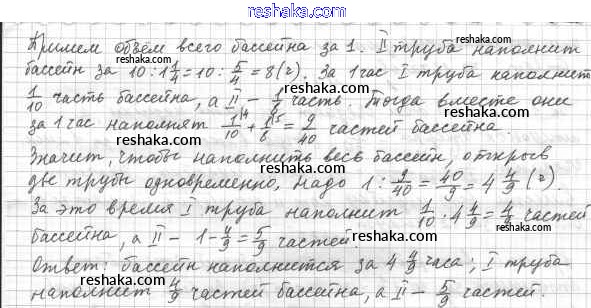 reshaka.com
Примем объём всего бассейна за 1. II труба наполнит
reshaka.com
бассейн за 10 : 1 1/4 = 10 : 5/4 = 8 (г). За 1 час I труба наполнит
reshaka.com
1/10 часть бассейна, а II – часть. Тогда вместе они
reshaka.com
за 1 час наполнят 1/10 \4 + 1/8 \5 = 9/40 частей бассейна.
reshaka.com
Значит, чтобы наполнить весь бассейн, открыв
reshaka.com
две трубы одновременно, надо 1 : 9/40 = 40/9 = 4 4/9 (г).
reshaka.com
За это время I труба наполнит 1/10 · 4 4/9 = 4/9 частей
reshaka.com
бассейна, а II – 1 – 4/9 = 5/9 частей.
reshaka.com
Ответ: бассейн наполнится за 4 4/9 часа; I труба
наполнит 4/9 частей бассейна, а II – 5/9 частей.
reshaka.com